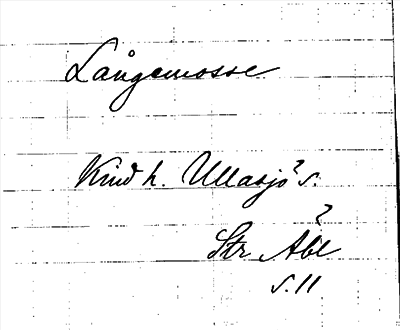 Långemosse
Kind h. Ullasjö? s.
?
Str Åbl
s. 11